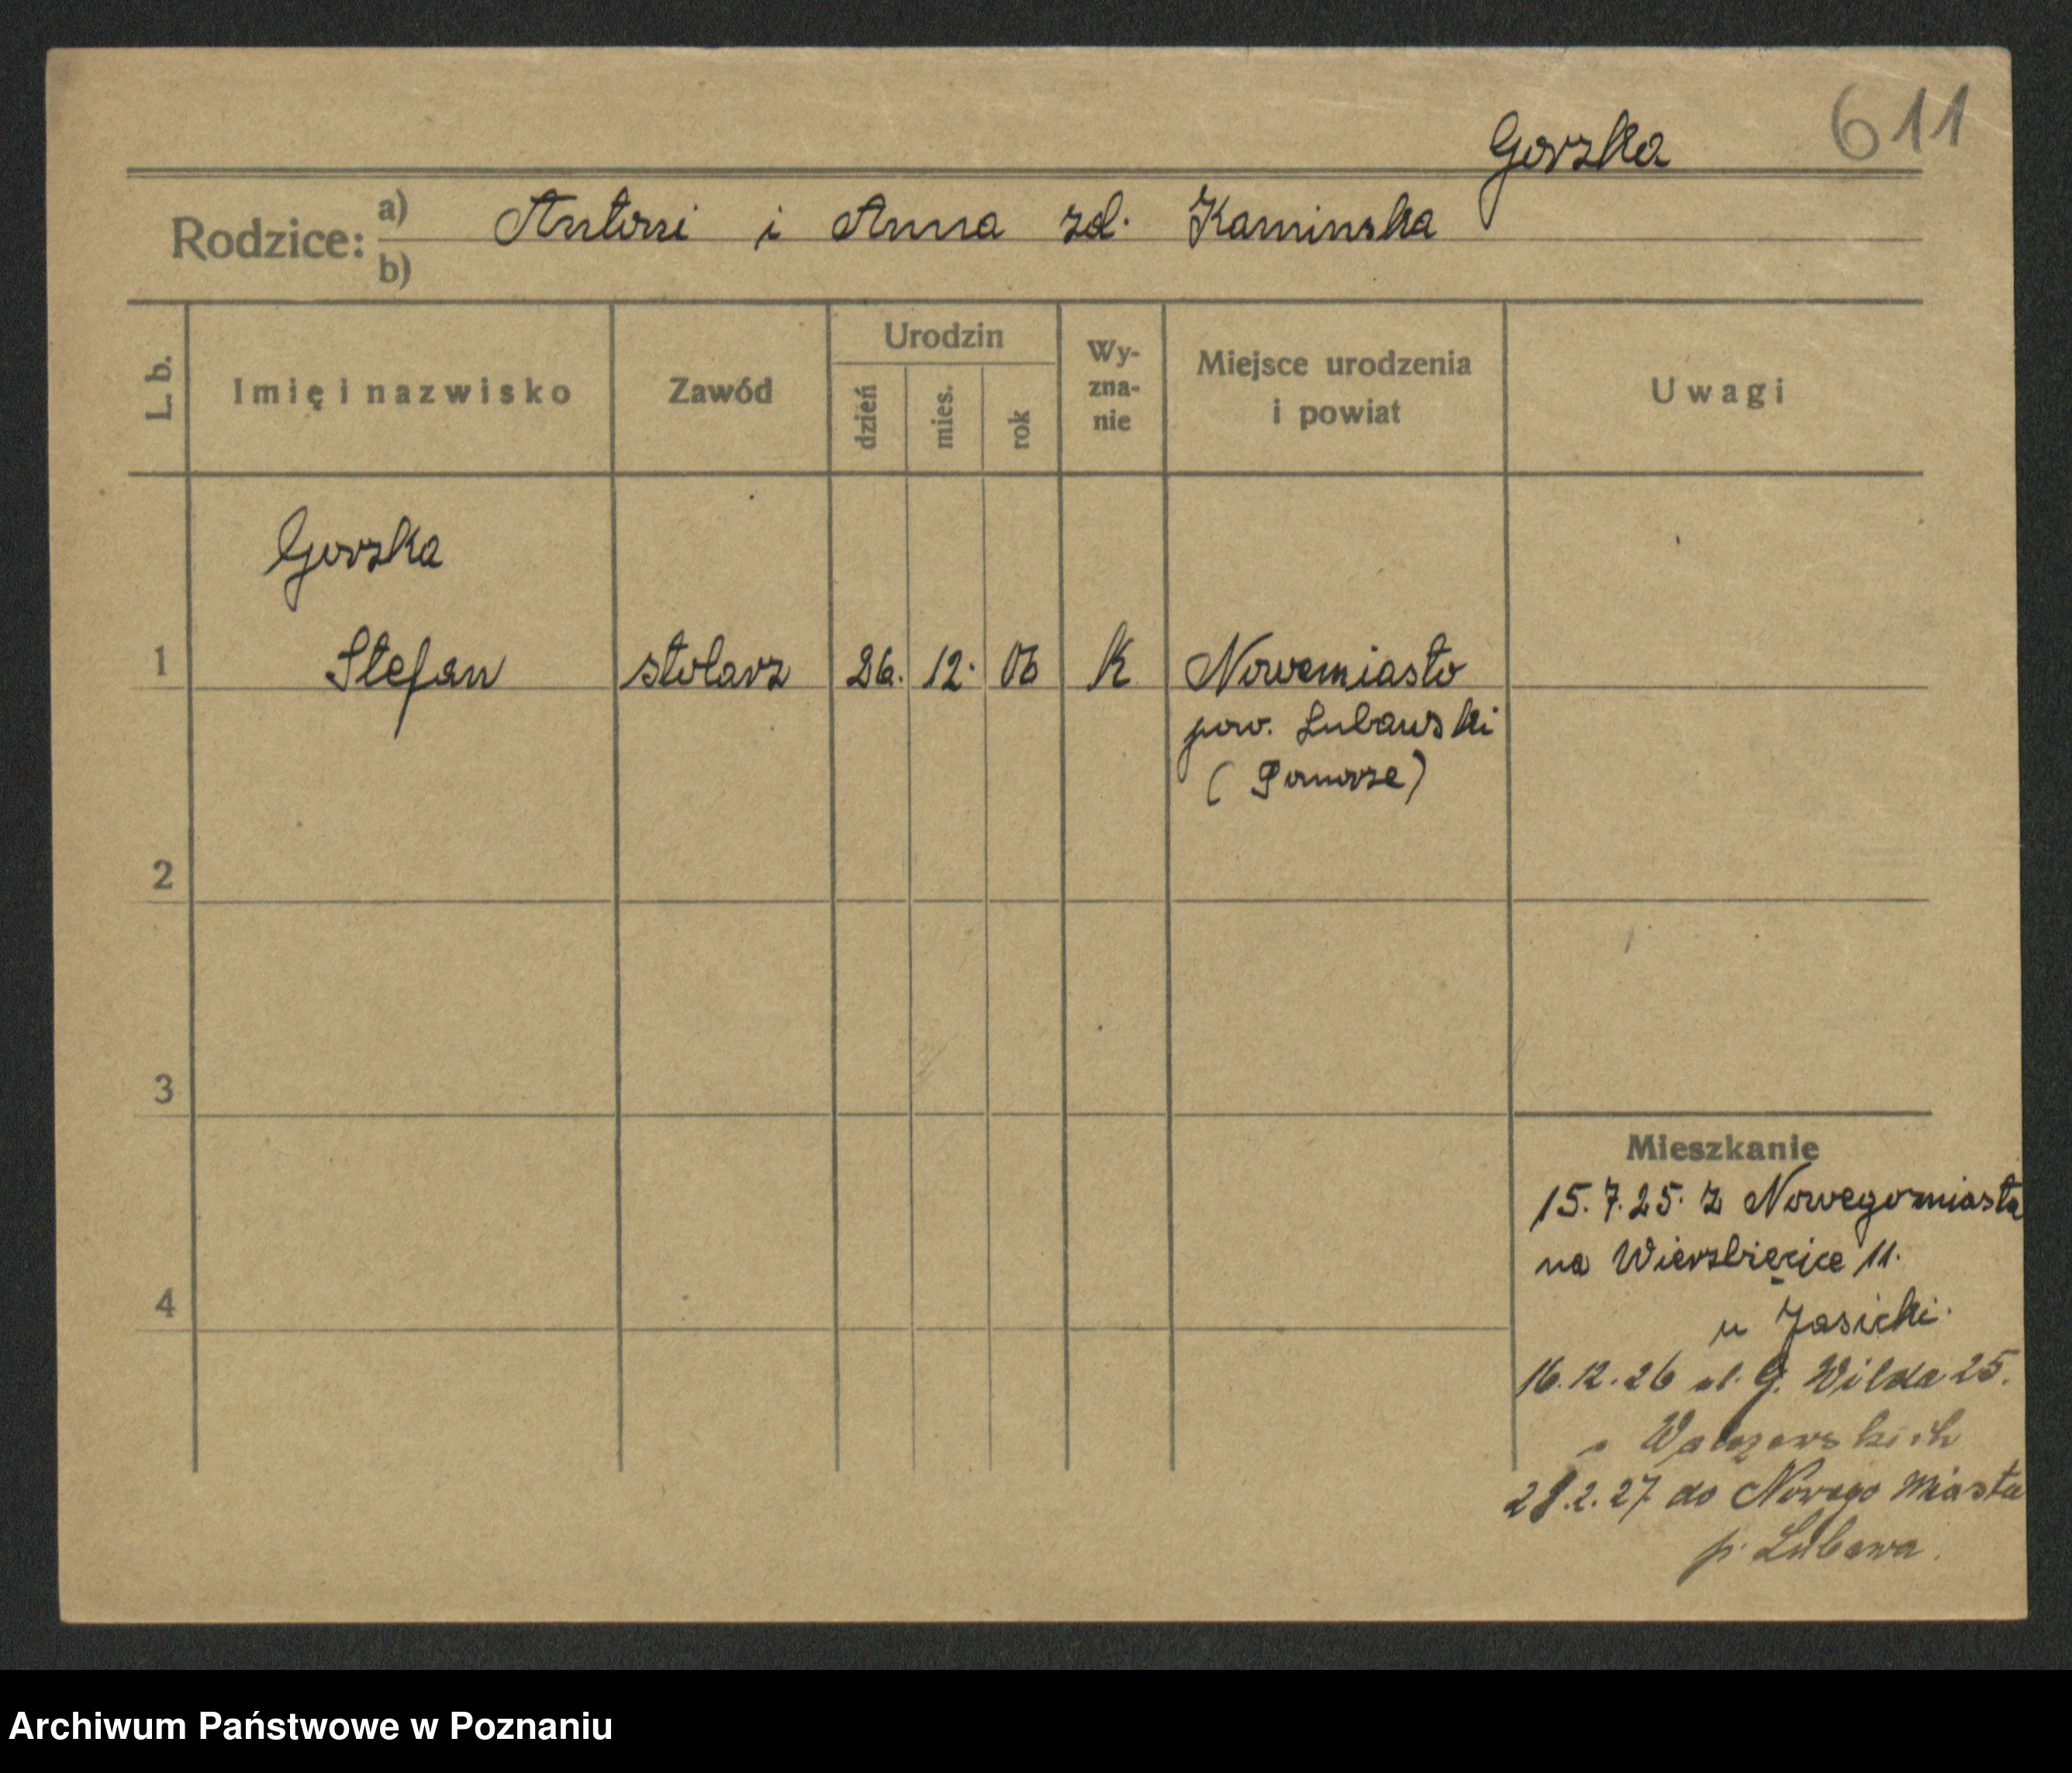 611
Gorzka
Rodzice: a) Antoni i Anna zd. Kaminska
b)
L. b. Imię i nazwisko Zawód Urodzin dzień mies. rok Wy-zna-nie Miejsce urodzenia i powiat Uwagi
Gorzka
1 Stefan stolarz 26. 12. 06 K Nowemiasto
pow. Lubawski
(Pomorze)
2
3
Mieszkanie
15.7.25. z Nowegomiasta
na Wierzbięcice 11.
4
u Jasicki.
16.12.26 ul. G. Wilda 25.
28.2.27 do Nowego Miasta
p. Lubawa.
Archiwum Państwowe w Poznaniu